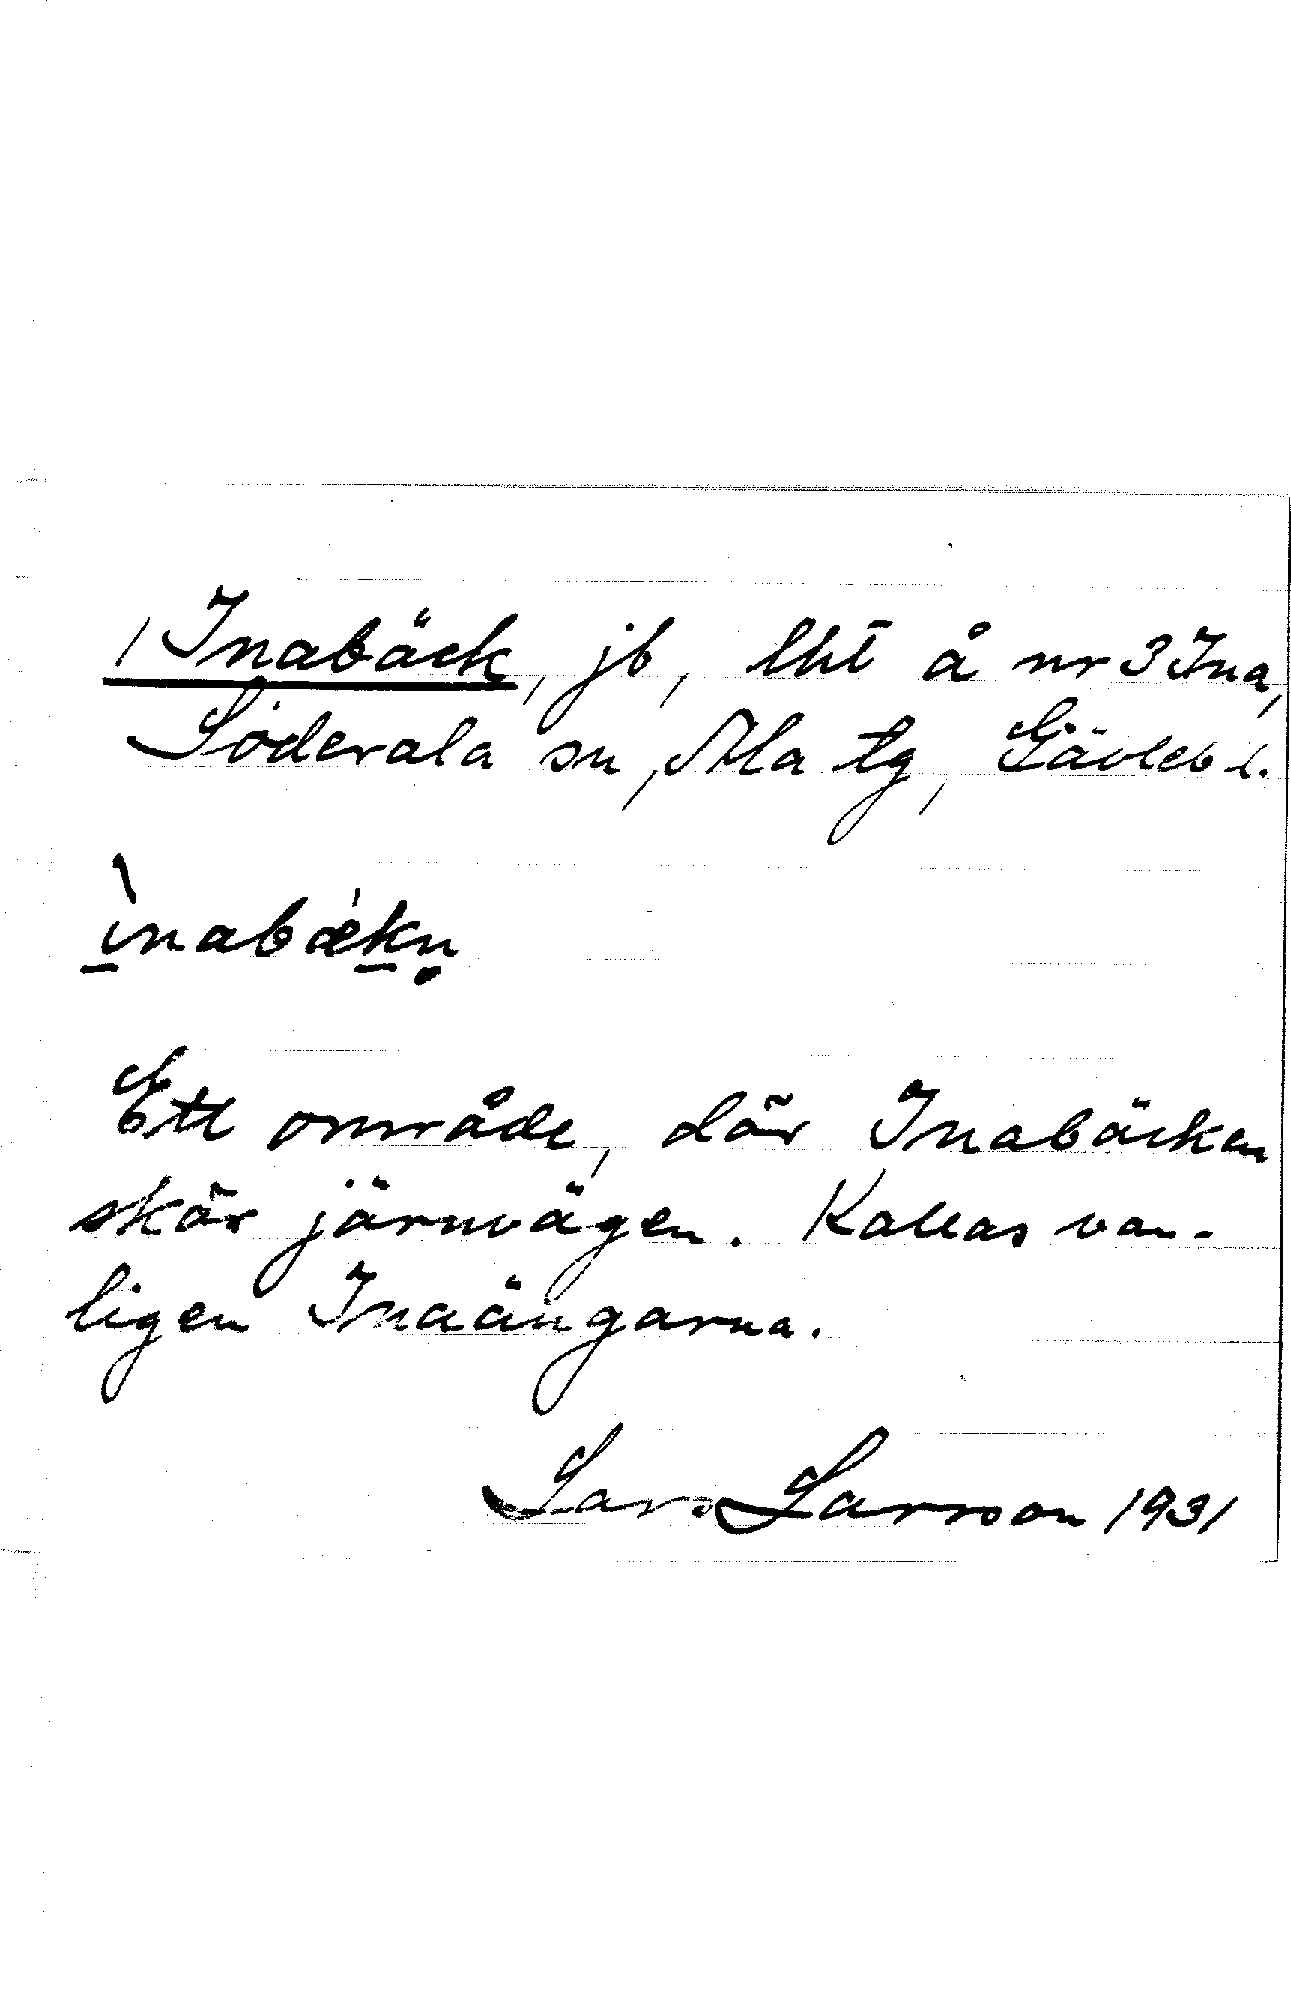 /Inabäck, jb, lht å nr 3 Ina,
Söderala sn, Ala tg, Gävleb l.
ìnabæ̀kn̥
Ett område, där Inabäcken
skär järnvägen. Kallas van-
ligen Inaängarna.
Lars Larsson 1931